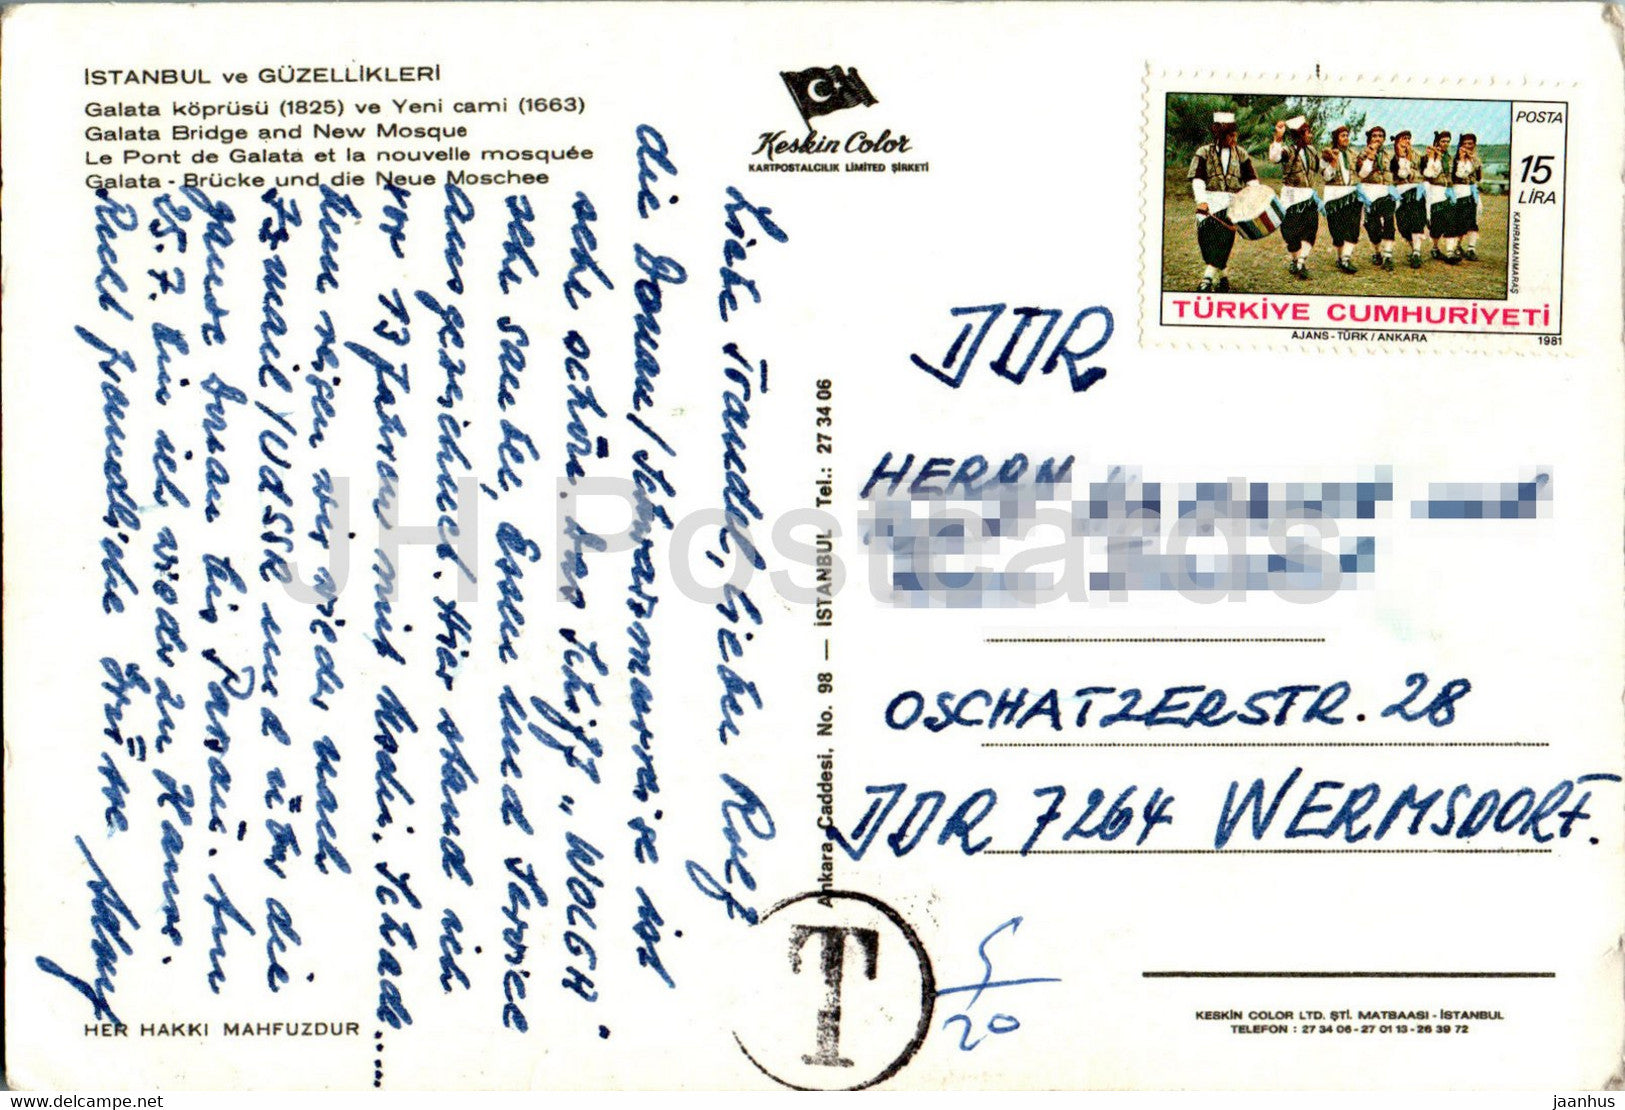 İSTANBUL ve GÜZELLİKLERİ
Galata köprüsü (1825) ve Yeni cami (1663)
Galata Bridge and New Mosque
Le Pont de Galata et la nouvelle mosquée
Galata - Brücke und die Neue Moschee
Keskin Color
KARTPOSTALCILIK LİMİTED ŞİRKETİ
POSTA
15
LİRA
KAHRAMANMARAŞ
TÜRKİYE CUMHURİYETİ
AJANS-TÜRK / ANKARA
1981
Liebe Traudl, lieber Rolf
die Donau/Schwarzmeerreise ist
sehr schön. Das Schiff „WOLGA"
sehr sauber, Essen und Service
ausgezeichnet. Hier stand ich
vor 13 Jahren mit Hedi. Schade.....
Nun reisen wir wieder nach
Ismail/UdSSR und über die
ganze Donau bis Passau. Am
25.7. bin ich wieder zu Hause.
Recht freundliche Grüsse
Ankara Caddesi, No. 98 — İSTANBUL Tel.: 27 34 06
DDR
HERRN
OSCHATZERSTR. 28
DDR 7264 WERMSDORF.
T
5/20
HER HAKKI MAHFUZDUR
KESKIN COLOR LTD. ŞTİ. MATBAASI - İSTANBUL
TELEFON : 27 34 06 - 27 01 13 - 26 39 72
JH Postcards
www.delcampe.net
jaanhus